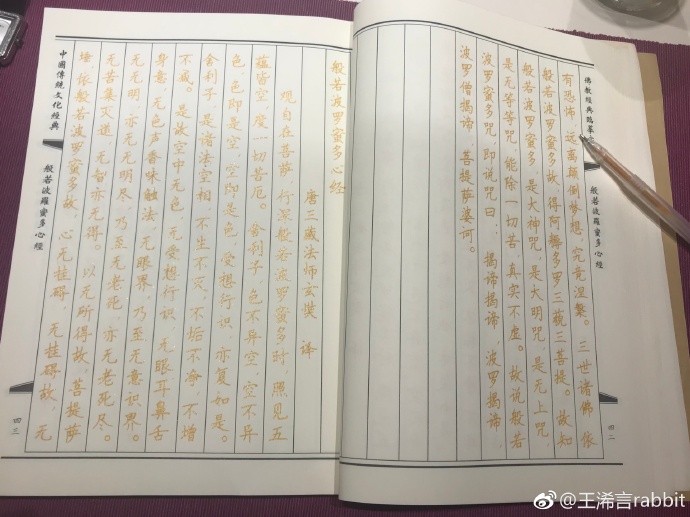 佛教經典臨摹
般若波羅蜜多心經
四二
有恐怖，远离颠倒梦想，究竟涅槃。三世诸佛，依
般若波罗蜜多故，得阿耨多罗三藐三菩提。故知
般若波罗蜜多，是大神咒，是大明咒，是无上咒，
是无等等咒，能除一切苦，真实不虚。故说般若
波罗蜜多咒，即说咒曰：揭谛揭谛，波罗揭谛，
波罗僧揭谛，菩提萨婆诃。
般若波罗蜜多心经
唐三藏法师玄奘 译
观自在菩萨，行深般若波罗蜜多时，照见五
蕴皆空，度一切苦厄。舍利子，色不异空，空不异
色，色即是空，空即是色，受想行识，亦复如是。
舍利子，是诸法空相，不生不灭，不垢不净，不增
不减。是故空中无色，无受想行识，无眼耳鼻舌
身意，无色声香味触法，无眼界，乃至无意识界。
无无明，亦无无明尽，乃至无老死，亦无老死尽。
无苦集灭道，无智亦无得。以无所得故，菩提萨
埵，依般若波罗蜜多故，心无挂碍，无挂碍故，无
中國傳統文化經典
般若波羅蜜多心經
四三
@王浠言rabbit